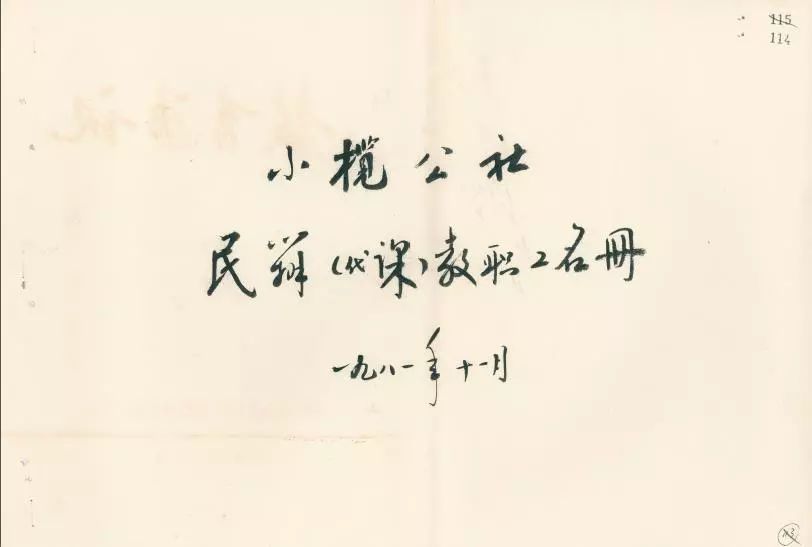 115
114
小榄公社
民辦（代课）教职工名册
一九八一年十一月